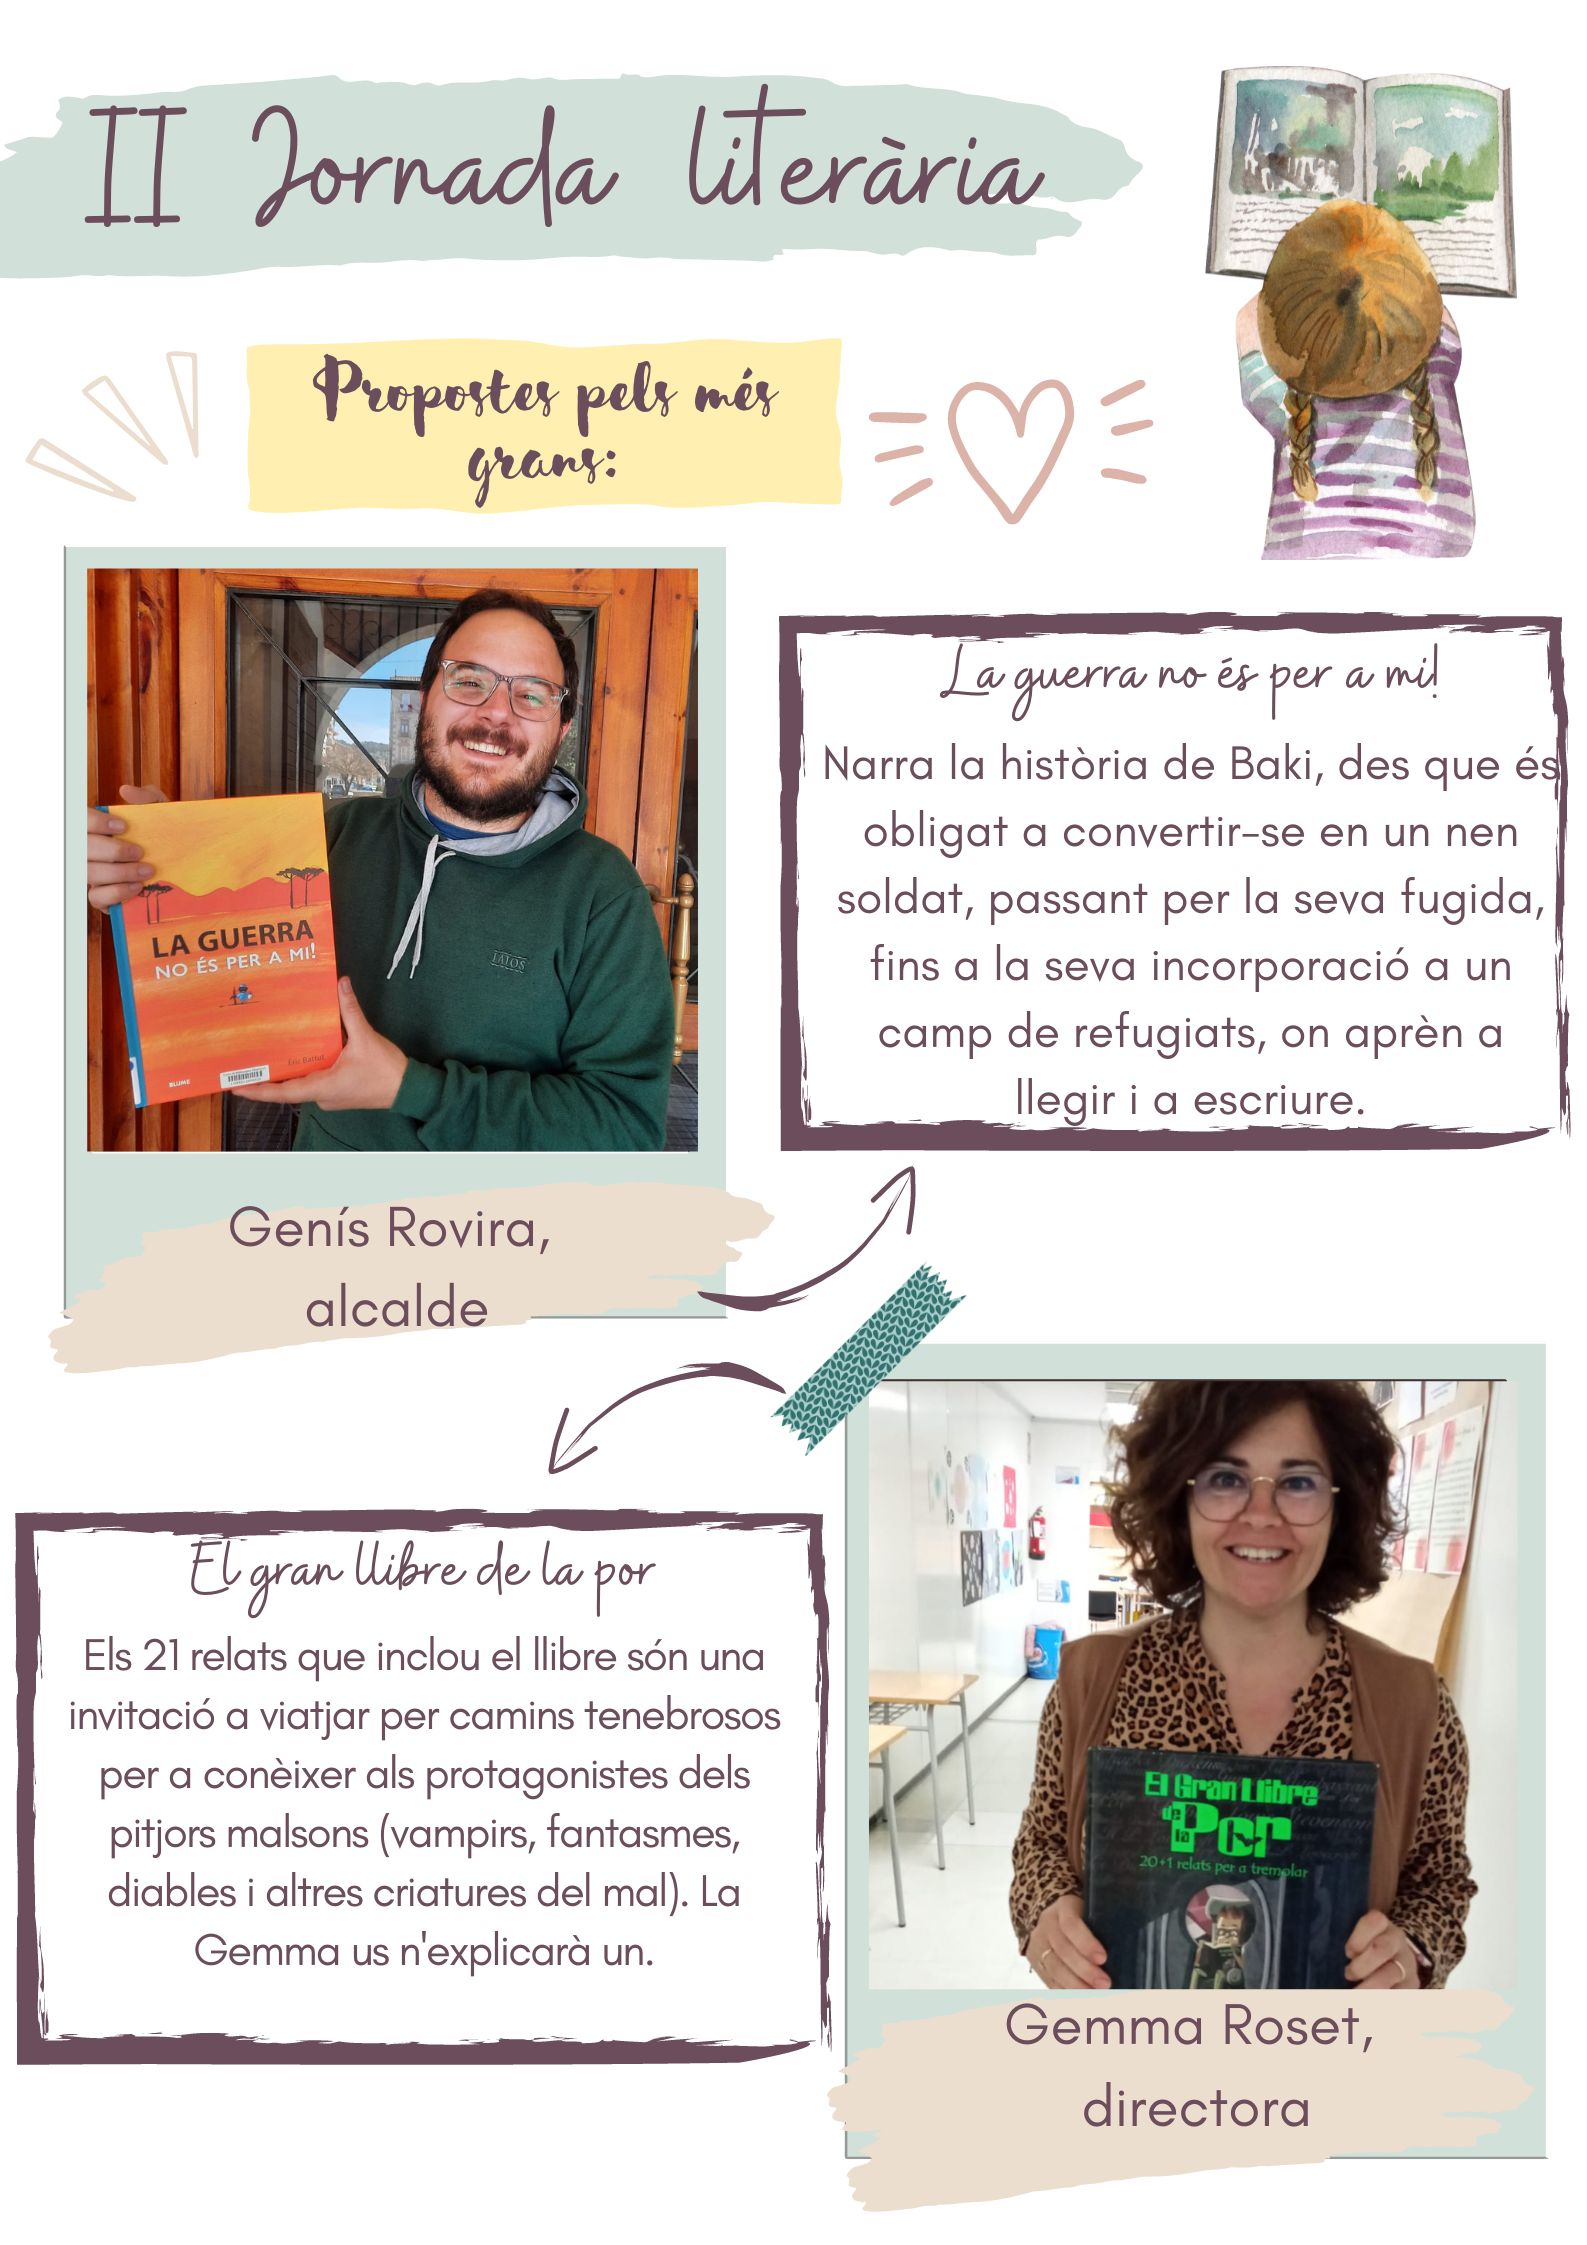 II Jornada literària
Propostes pels més
grans:
LA GUERRA
NO ÉS PER A MI!
Éric Battut
BLUME
Genís Rovira,
alcalde
La guerra no és per a mi!
Narra la història de Baki, des que és
obligat a convertir-se en un nen
soldat, passant per la seva fugida,
fins a la seva incorporació a un
camp de refugiats, on aprèn a
llegir i a escriure.
El gran llibre de la por
Els 21 relats que inclou el llibre són una
invitació a viatjar per camins tenebrosos
per a conèixer als protagonistes dels
pitjors malsons (vampirs, fantasmes,
diables i altres criatures del mal). La
Gemma us n'explicarà un.
El Gran Llibre
de la
Por
20+1 relats per a tremolar
Gemma Roset,
directora